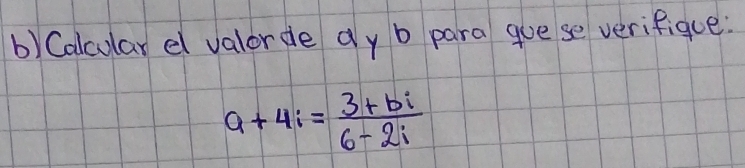 b) Calcular el valor de a y b para que se verifique:
a + 4i = \frac{3 + bi}{6 - 2i}